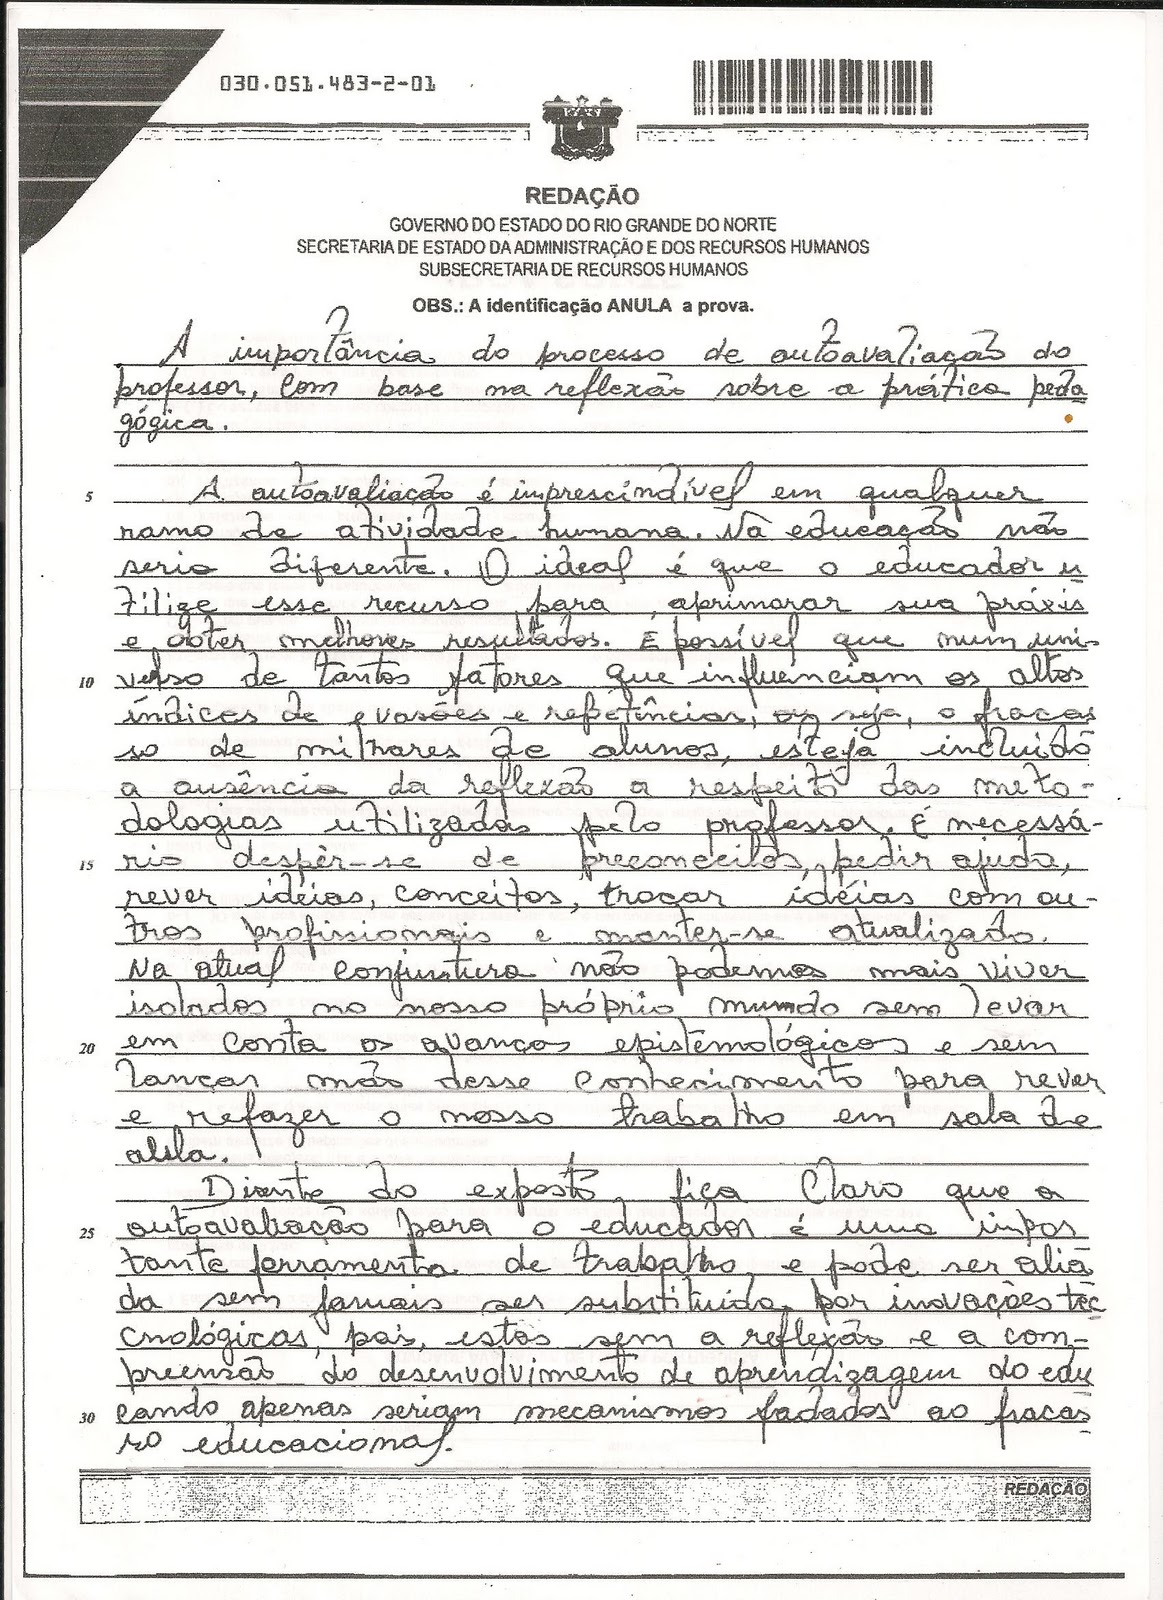 030.051.483-2-01
REDAÇÃO
GOVERNO DO ESTADO DO RIO GRANDE DO NORTE
SECRETARIA DE ESTADO DA ADMINISTRAÇÃO E DOS RECURSOS HUMANOS
SUBSECRETARIA DE RECURSOS HUMANOS
OBS.: A identificação ANULA a prova.
A importância do processo de autoavaliação do
professor, com base na reflexão sobre a prática peda
gógica.
5 A autoavaliação é imprescindível em qualquer
ramo de atividade humana. Na educação não
seria diferente. O ideal é que o educador u
tilize esse recurso para aprimorar sua práxis
e obter melhores resultados. É possível que num uni-
10 verso de tantos fatores que influenciam os altos
índices de evasões e repetências, ou seja, o fracas
so de milhares de alunos, esteja incluído
a ausência da reflexão a respeito das meto-
dologias utilizadas pelo professor. É necessá-
15 rio despir-se de preconceitos, pedir ajuda,
rever idéias, conceitos, trocar idéias com ou-
tros profissionais e manter-se atualizado.
Na atual conjuntura não podemos mais viver
isolados no nosso próprio mundo sem levar
20 em conta os avanços epistemológicos e sem
lançar mão desse conhecimento para rever
e refazer o nosso trabalho em sala de
aula.
Diante do exposto, fica claro que a
25 autoavaliação para o educador é uma impor
tante ferramenta de trabalho e pode ser alia
da sem jamais ser substituída por inovações tec
cnológicas, pois, estas sem a reflexão e a com-
preensão do desenvolvimento de aprendizagem do edu
30 cando apenas seriam mecanismos fadados ao fracas
so educacional.
REDAÇÃO